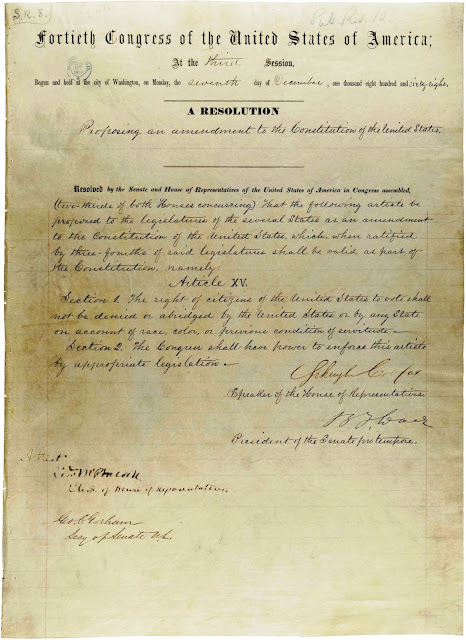 S.R.8.
Pub. Res. 10
Fortieth Congress of the United States of America;
At the third Session,
Begun and held at the city of Washington, on Monday, the seventh day of December, one thousand eight hundred and sixty-eight.
A RESOLUTION
Proposing an amendment to the Constitution of the United States.
Resolved by the Senate and House of Representatives of the United States of America in Congress assembled,
(two-thirds of both Houses concurring) That the following article be
proposed to the legislatures of the several States as an amendment
to the Constitution of the United States, which, when ratified
by three-fourths of said legislatures shall be valid as part of
the Constitution, namely:
Article XV.
Section 1. The right of citizens of the United States to vote shall
not be denied or abridged by the United States or by any State
on account of race, color, or previous condition of servitude—
Section 2. The Congress shall have power to enforce this article
by appropriate legislation—
Schuyler Colfax
Speaker of the House of Representatives.
B F Wade
President of the Senate pro tempore.
Attest:
Edwd McPherson
Clerk of House of Representatives.
Geo. C. Gorham
Secy of Senate U.S.